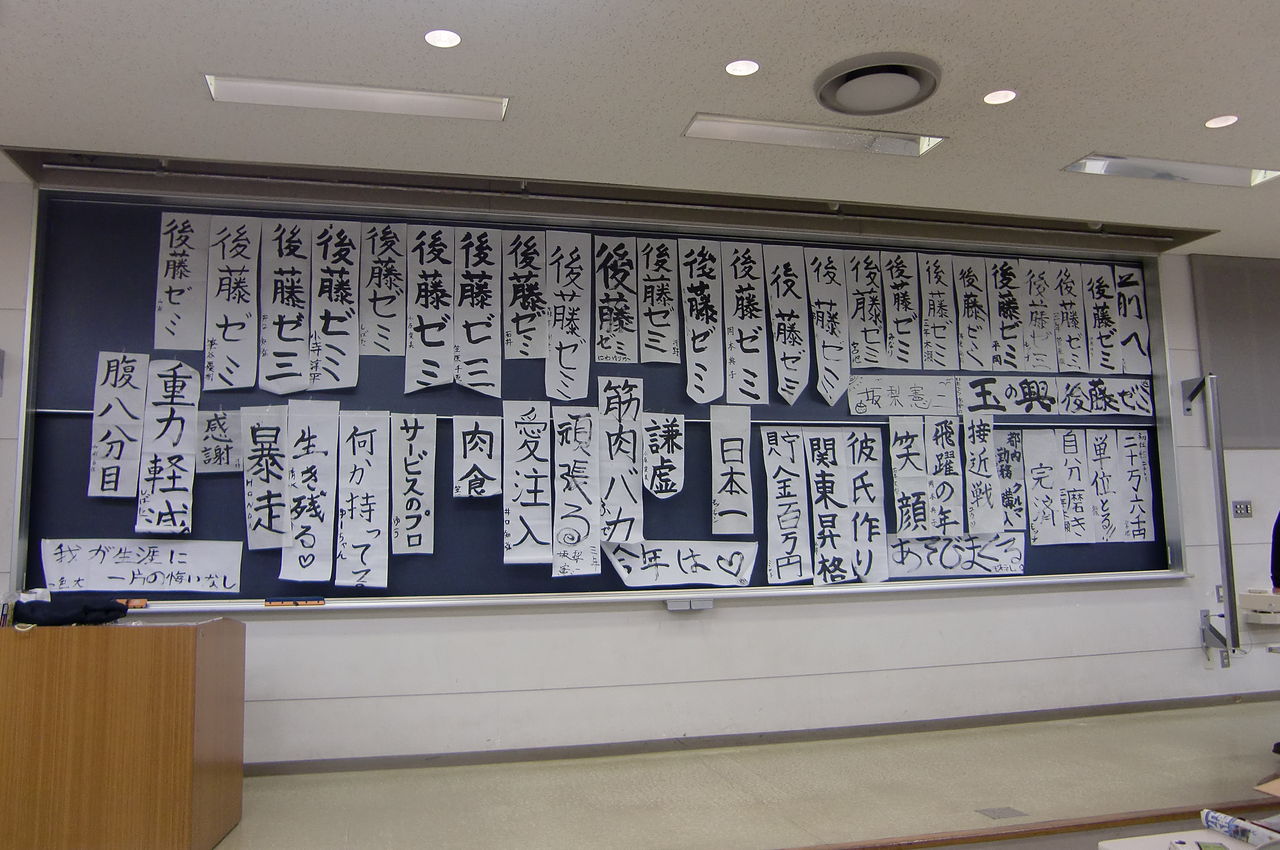 前へ
後藤ゼミ
後藤ゼミ
後藤ゼミ
後藤ゼミ
平岡
後藤ゼミ
後藤ゼミ
後藤ゼミ
後藤ゼミ
後藤ゼミ
後藤ゼミ
後藤ゼミ
後藤ゼミ
後藤ゼミ
後藤ゼミ
後藤ゼミ
後藤ゼミ
石井
後藤ゼミ
後藤ゼミ
後藤ゼミ
後藤ゼミ
小寺
後藤ゼミ
後藤ゼミ
後藤ゼミ
坂梨憲二
玉の輿
後藤ゼミ
単位とる!!
自分磨き
完済
都内勤務
クルマ購入
接近戦
飛躍の年
笑顔
あそびまくる
彼氏作り
関東昇格
貯金百万円
日本一
謙虚
筋肉バカ
今年は♡
頑張る
愛注入
肉食
サービスのプロ
ゆう
何か持ってる
生き残る♡
暴走
感謝
重力軽減
腹八分目
我が生涯に
一片の悔いなし